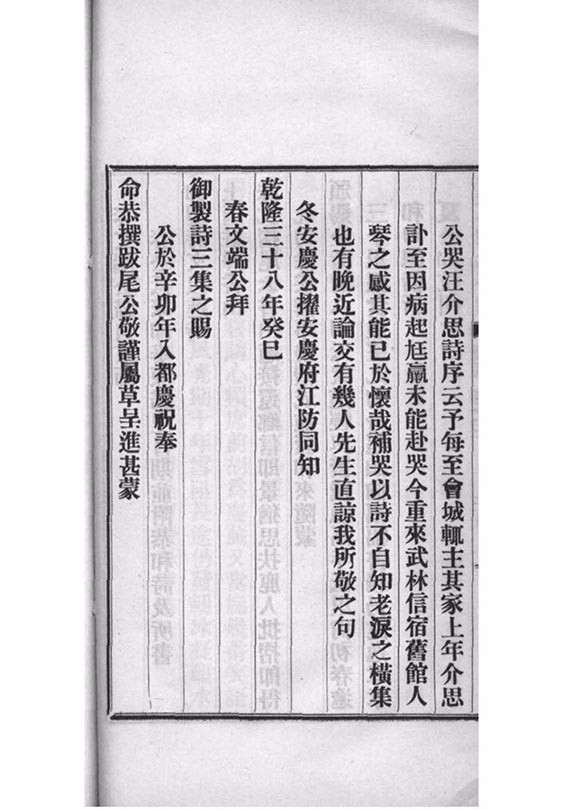 公哭汪介思詩序云予每至會城輒主其家上年介思
訃至因病起尫羸未能赴哭今重來武林信宿舊館人
琴之感其能已於懷哉補哭以詩不自知老淚之橫集
也有晚近論交有幾人先生直諒我所敬之句
冬安慶公擢安慶府江防同知
乾隆三十八年癸巳
春文端公拜
御製詩三集之賜
公於辛卯年入都慶祝奉
命恭撰跋尾公敬謹屬草呈進甚蒙